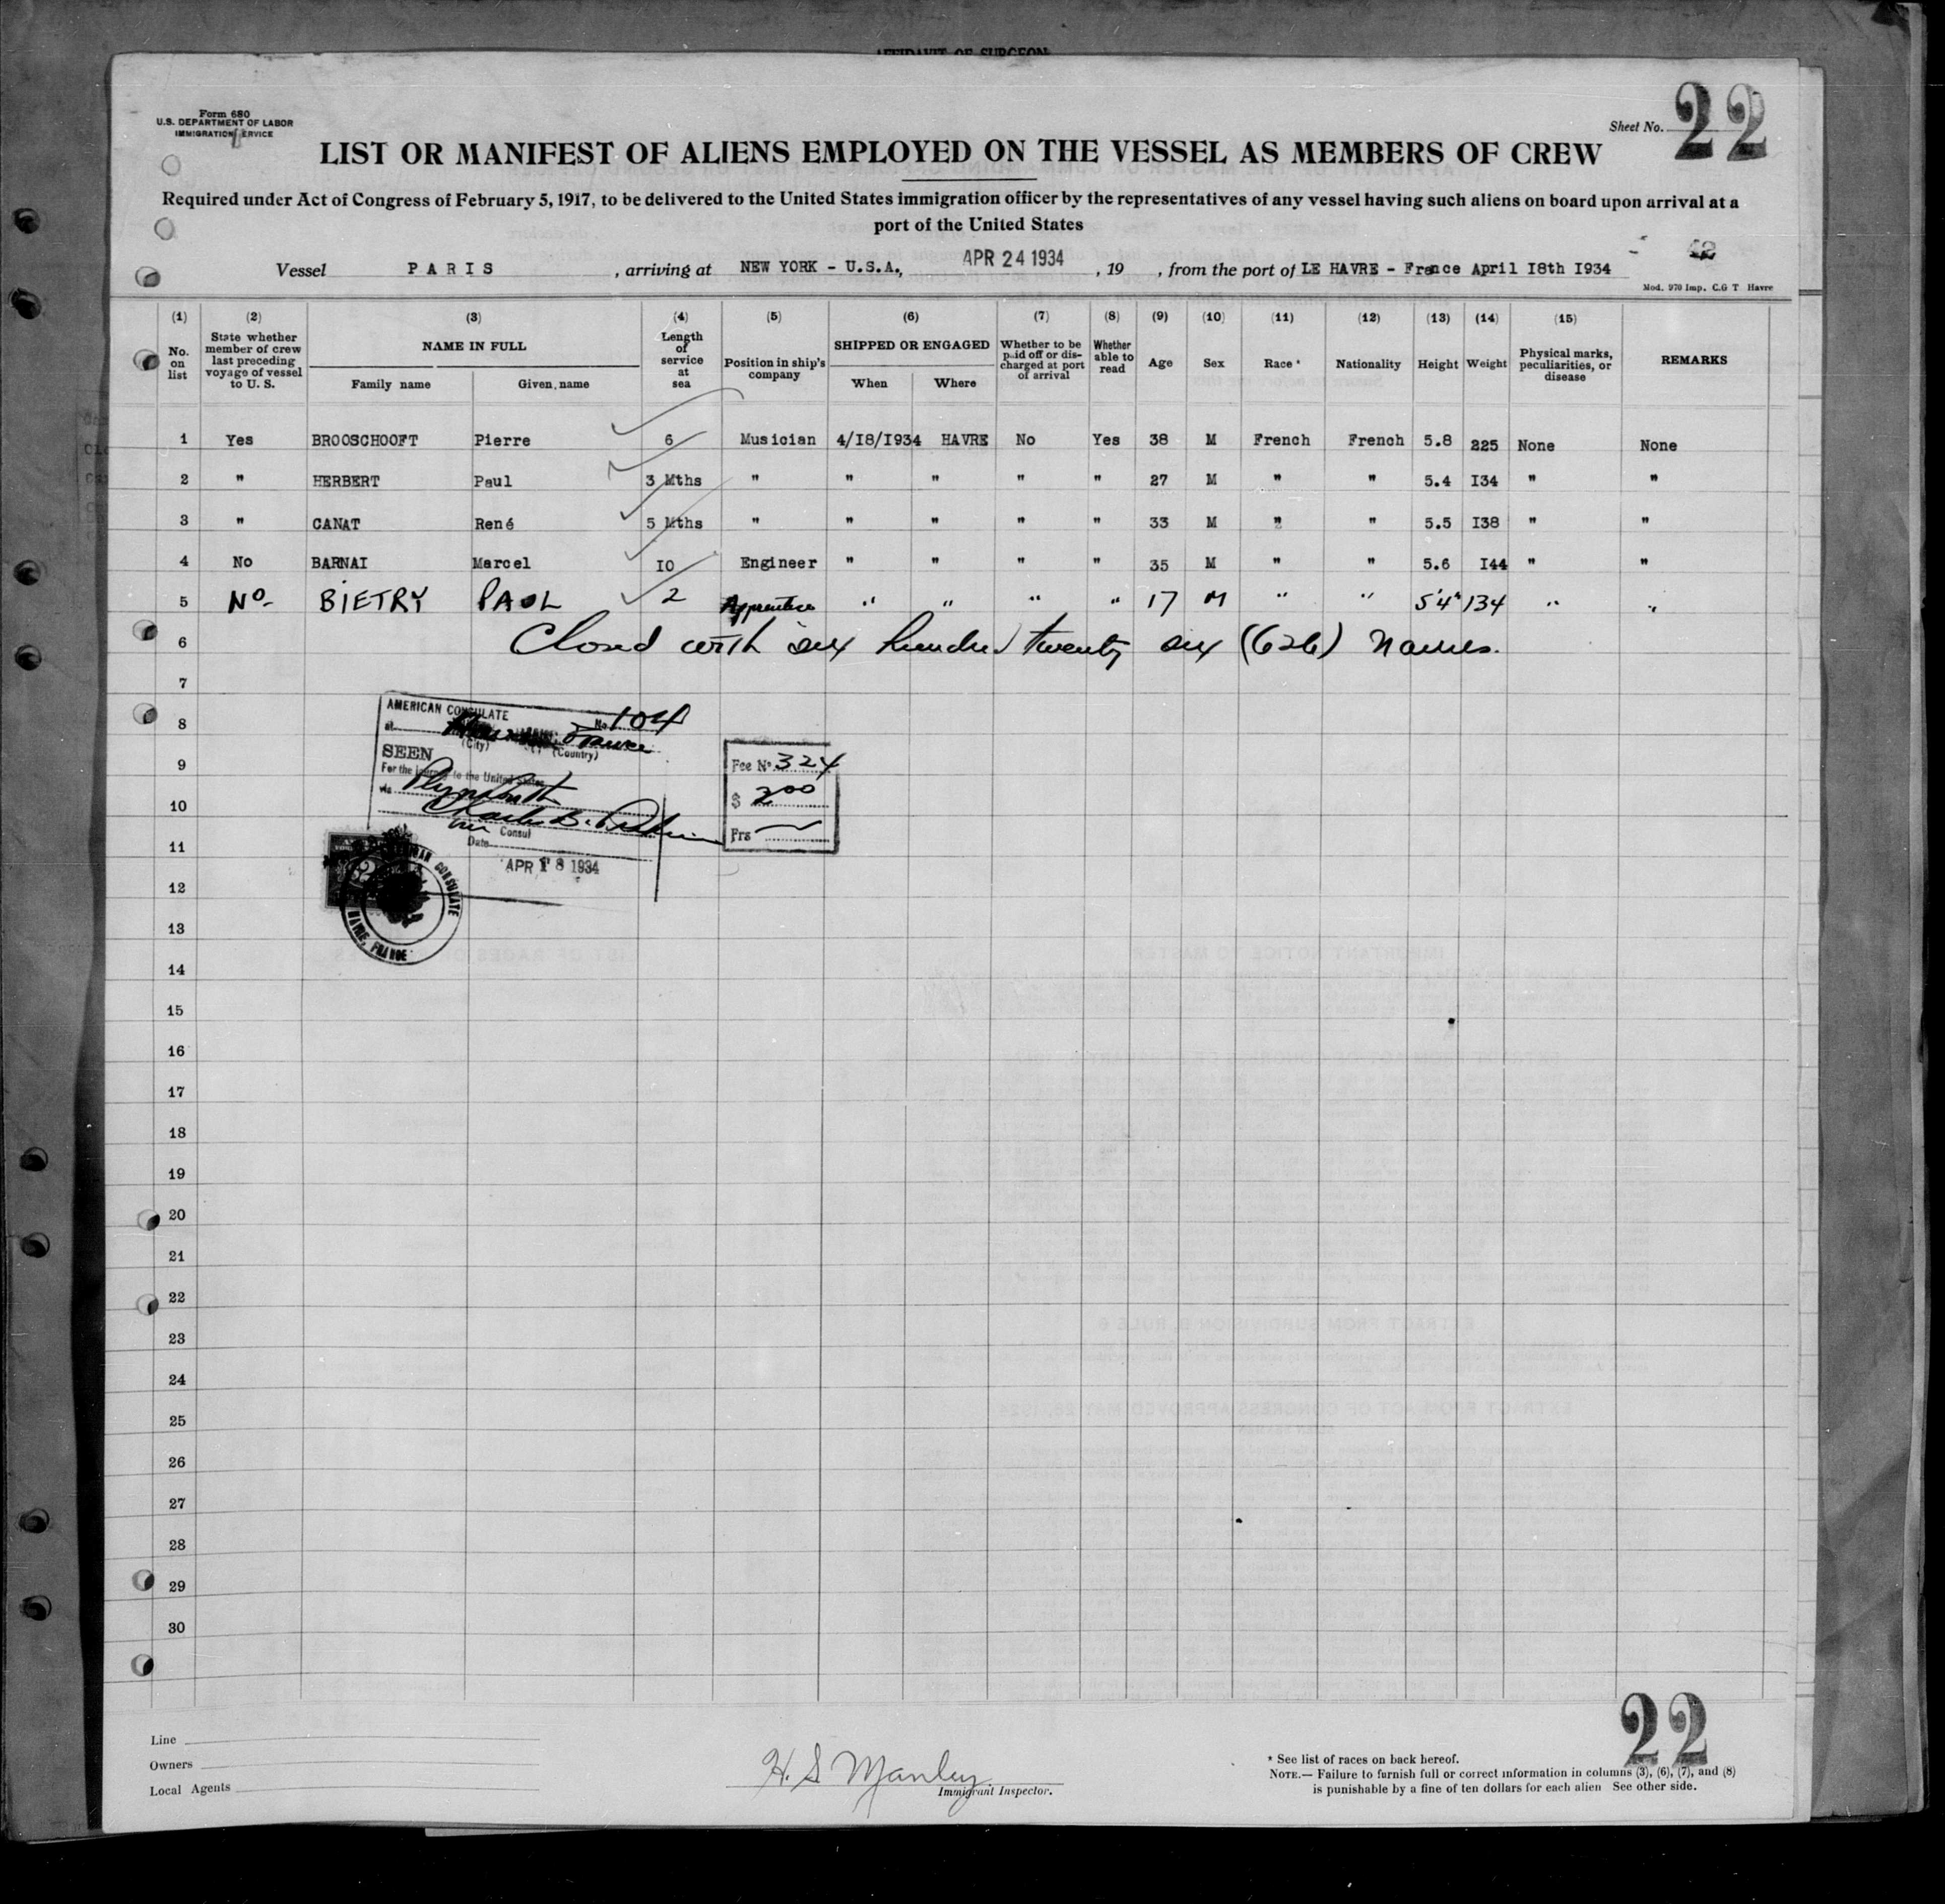 AFFIDAVIT OF SURGEON
Form 680
U.S. DEPARTMENT OF LABOR
IMMIGRATION SERVICE
Sheet No. 22
LIST OR MANIFEST OF ALIENS EMPLOYED ON THE VESSEL AS MEMBERS OF CREW
Required under Act of Congress of February 5, 1917, to be delivered to the United States immigration officer by the representatives of any vessel having such aliens on board upon arrival at a
port of the United States
42
Vessel PARIS , arriving at NEW YORK - U.S.A., APR 24 1934 , 19 , from the port of LE HAVRE - France April I8th I934
Mod. 970 Imp. C.G T Havre
(1) (2) (3) (4) (5) (6) (7) (8) (9) (10) (11) (12) (13) (14) (15)
No. on list State whether member of crew last preceding voyage of vessel to U. S. NAME IN FULL Family name Given name Length of service at sea Position in ship's company SHIPPED OR ENGAGED When Where Whether to be paid off or discharged at port of arrival Whether able to read Age Sex Race * Nationality Height Weight Physical marks, peculiarities, or disease REMARKS
1 Yes BROOSCHOOFT Pierre 6 Musician 4/I8/I934 HAVRE No Yes 38 M French French 5.8 225 None None
2 " HERBERT Paul 3 Mths " " " " " 27 M " " 5.4 I34 " "
3 " CANAT René 5 Mths " " " " " 33 M " " 5.5 I38 " "
4 No BARNAI Marcel IO Engineer " " " " 35 M " " 5.6 I44 " "
5 No- BIETRY PAUL 2 Apprentice " " " " 17 M " " 5'4" 134 " "
6 Closed with six hundred twenty six (626) Names.
7
8
9
10
11
12
13
14
15
16
17
18
19
20
21
22
23
24
25
26
27
28
29
30
AMERICAN CONSULATE
at France No. 104
(City) (Country)
SEEN
For the journey to the United States
via Plymouth
Charles B.
Consul
Date
APR 18 1934
Fee No. 324
$ 2 00
Frs
AMERICAN CONSULATE
HAVRE, FRANCE
Line
Owners
Local Agents
H. S Manley
Immigrant Inspector.
22
* See list of races on back hereof.
NOTE.— Failure to furnish full or correct information in columns (3), (6), (7), and (8)
is punishable by a fine of ten dollars for each alien See other side.